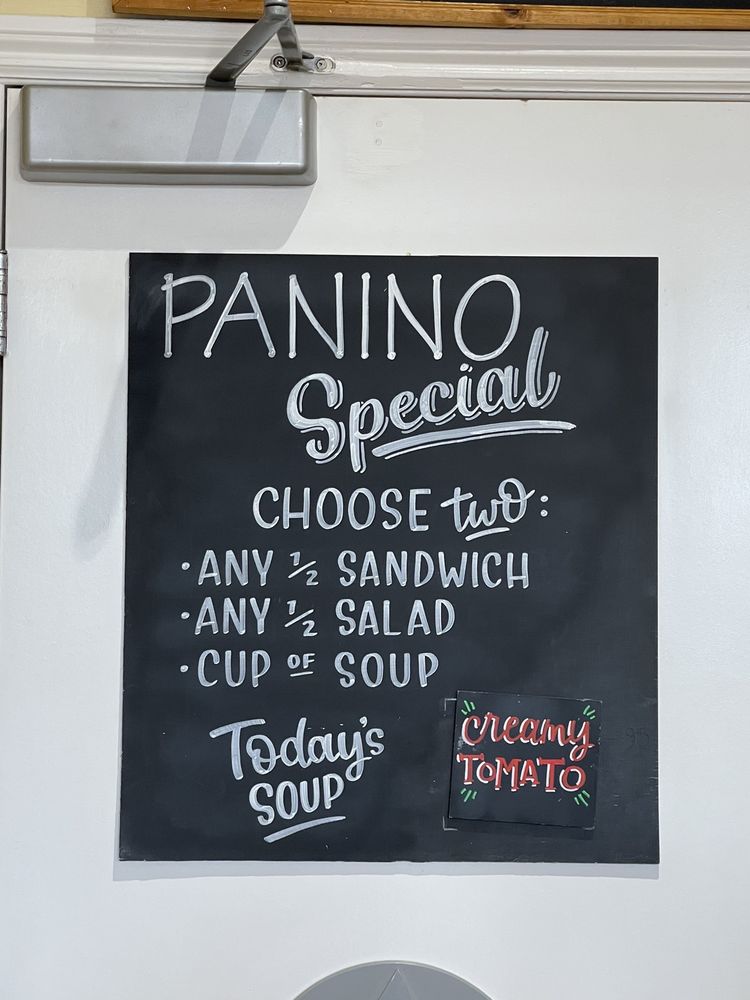 PANINO
Special
CHOOSE two:
·ANY 1/2 SANDWICH
·ANY 1/2 SALAD
·CUP OF SOUP
Today's
SOUP
creamy
TOMATO